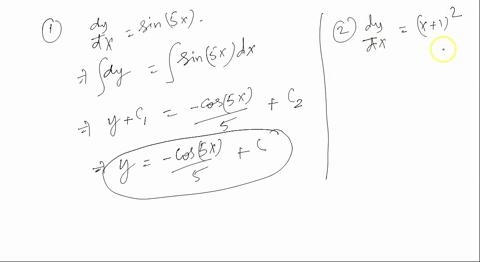 ① dy/dx = sin(5x).
⇒ ∫dy = ∫sin(5x)dx
⇒ y+C₁ = -cos(5x)/5 + C₂
⇒ y = -cos(5x)/5 + C
② dy/dx = (x+1)²